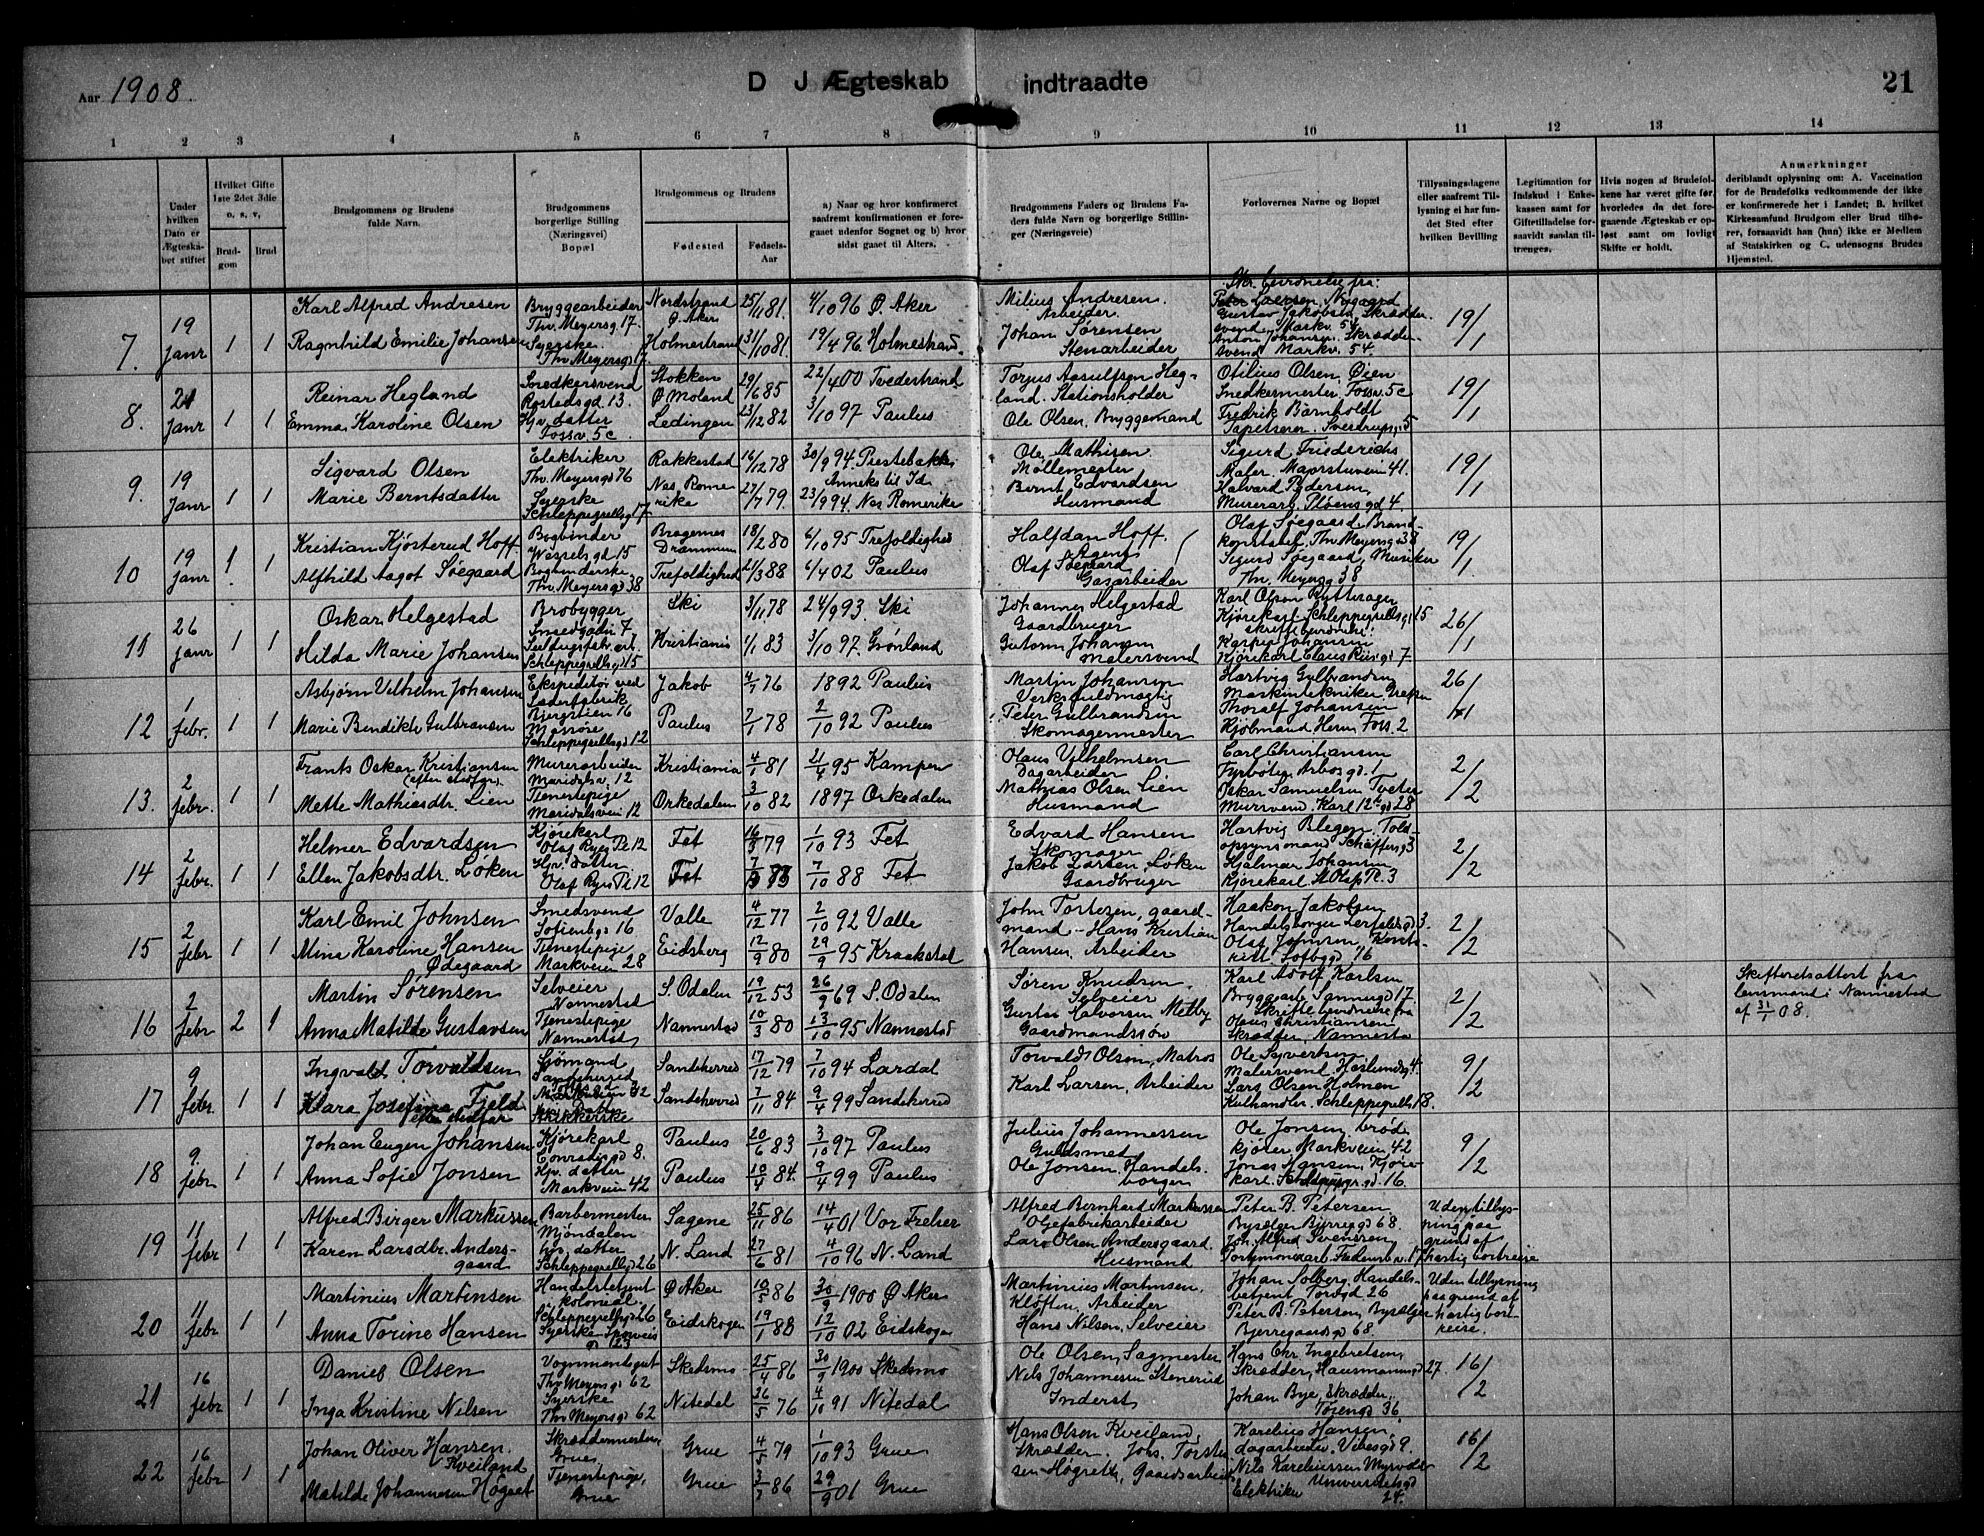 Aar 1908.
D J Ægteskab indtraadte
21
1 2 3 4 5 6 7 8 9 10 11 12 13 14
Under hvilken Dato er Ægteskabet stiftet
Hvilket Gifte 1ste 2det 3die o. s. v,
Brudgom
Brud
Brudgommens og Brudens fulde Navn.
Brudgommens borgerlige Stilling (Næringsvei) Bopæl
Brudgommens og Brudens
Fødested
Fødsels-Aar
a) Naar og hvor konfirmeret saafremt konfirmationen er foregaaet udenfor Sognet og b) hvor sidst gaaet til Alters.
Brudgommens Faders og Brudens Faders fulde Navn og borgerlige Stillinger (Næringsveie)
Forlovernes Navne og Bopæl
Tillysningsdagene eller saafremt Tillysning ei har fundet Sted efter hvilken Bevilling
Legitimation for Indskud i Enkekassen samt for Giftetilladelse forsaavidt saadan tiltrænges.
Hvis nogen af Brudefolkene har været gifte før, hvorledes da det foregaaende Ægteskab er opløst samt om lovligt Skifte er holdt.
Anmerkninger deriblandt oplysning om: A. Vaccination for de Brudefolks vedkommende der ikke er konfirmerede her i Landet; B. hvilket Kirkesamfund Brudgom eller Brud tilhører, forsaavidt han (hun) ikke er Medlem af Statskirken og C. udensogns Brudes Hjemsted.
7. 19 Janr 1 1
Karl Alfred Andresen
Bryggearbeider Thv. Meyersg 17.
Nordstrand Ø. Aker
25/1 81.
4/10 96 Ø. Aker
Milius Andresen. Arbeider
Ragnhild Emilie Johansen
Syerske. Thv Meyersg 17
Holmestrand
31/10 81.
19/4 96. Holmestrand.
Johan Sørensen Stenarbeider
Gustav Jakobsen, Skræddersvend, Markv. 54
Anton Johansen, Skræddersvend Markv. 54.
19/1
8. 21 Janr 1 1
Reinar Hegland
Snedkersvend Rostedsgd. 13.
Stokken Ø Moland
29/6 85
22/4 00 Tvedestrand
Torjus Aasulfsen Hegland. Stationsholder
Emma Karoline Olsen
Hjv. datter Fossv. 5c
Ledingen
23/12 82
3/10 97 Paulus
Ole Olsen, Bryggemand
Otilius Olsen, Øien Snedkermester, Fossv. 5c
Fredrik Børnholdt Tapetserer. Sverdrupsg 5
19/1
9. 19 Janr 1 1
Sigvard Olsen
Elektriker Thv. Meyersgd 76
Rakkestad
16/12 78
30/9 94. Prestebakke Anneks til Id
Ole Mathisen Møllemester
Marie Berntsdatter
Syerske Schleppegrellsg 17
Nas Romerike
27/7 79.
23/9 94. Nas Romerike
Bernt Edvardsen Husmand
Sigurd Friederichs Maler. Majorstuveien 41.
Halvard Pedersen, Murerarb. Pløensgd 4.
19/1
10 19 janr 1 1
Kristian Kjøsterud Hoff
Bogbinder Wesselsgd 15
Bragernes Drammen
18/2 80
6/10 95 Trefoldighed
Halfdan Hoff. Agent
Alfhild Aagot Søegaard
Bogbinderske Thv. Meyersgd 38
Trefoldighed
21/3 88
6/4 02 Paulus
Olaf Søegaard Gasarbeider
Olaf Søegaard, Brandkonstabel, Thv Meyersg 38
Sigurd Søegaard, Musiker Thv. Meyersg 38
19/1
11 26 janr 1 1
Oskar Helgestad
Brobygger Smedgaden 7
Ski
3/11 78
24/9 93. Ski
Johannes Helgestad Gaardbruger
Hilda Marie Johansen
Schleppegrellsgd 15
Kristiania
1/1 83
3/10 97. Grønland
Gustav Johansen malersvend
Karl Olsen Rytterager Kjørekarl, Schleppegrellsg 15
Kasper Johansen Kjørekarl Claus Riisgd 7
26/1
12 1 febr. 1 1
Asbjørn Vilhelm Johansen
Ekspeditør ved Læderfabrik Bjergstien 16
Jakob
4/7 76
1892 Paulus
Martin Johansen Verksfuldmægtig
Marie Bendikte Gulbransen
Massøse Schleppegrellsgd 12
Paulus
7/1 78
2/10 92 Paulus
Peter Gulbrandsen Skomagermester
Hartvig Gulbrandsen Maskintekniker Grefsen
Thoralf Johansen Kjøbmand Herm. Foss. 2
26/1
13. 2 febr. 1 1
Frants Oskar Kristiansen
Murerarbeider Maridalsv. 12
Kristiania
4/1 81
21/4 95 Kampen
Olaus Vilhelmsen Dagarbeider
Mette Mathiasdtr. Lien
Tjenestepige Maridalsvei 12
Orkedalen
3/10 82
1897 Orkedalen
Mathias Olsen Lien Husmand
Carl Christiansen Fyrbøter Arbosgd. 1
Oskar Samuelsen Tveter Murrsvend. Karl 12tesgd 28
2/2
14 2 febr. 1 1
Helmer Edvardsen
Kjørekarl Olaf Ryes Pl 12
Fet
16/3 79
1/10 93 Fet
Edvard Hansen Skomager
Ellen Jakobsdtr. Løken
Hjv. datter Olaf Ryes Pl 12
Fet
7/10 88 Fet
Jakob Larsen, Løken Gaardbruger
Hartvig Blegen, Toldopsynsmand Schäffersg 3
Hjalmar Johansen Kjørekarl St Olafs Pl. 3
2/2
15 2 febr 1 1
Karl Emil Johnsen
Smedsvend Sofienbgd 16
Valle
4/12 77
2/10 92 Valle
John Tostesen, gaardmand
Mina Karoline Hansen Ødegaard
Tjenestepige Markveien 28
Eidsberg
12/9 80
29/9 95 Kraakstad
Hans Kristian Hansen, Arbeider
Haakon Jakobsen Handelsborger
Olaf Johnsen, Sofbgd 16
2/2
16 2 febr 2 1
Martin Sørensen
Selveier Nannestad
S. Odalen
19/12 53
26/9 69 S. Odalen
Søren Knudsen, Selveier
Anna Matilde Gustavsen
Tjenestepige Nannestad
Nannestad
10/3 80
13/10 95 Nannestad
Gustav Halvorsen Melby Gaardmandssøn
Karl Adolf Karlsen Bryggearb Sannergd 17.
Skriftl. borgerskab fra Olaus Christiansen Skrædder, Nannestad
2/2
Skifteretsattest fra lensmand i Nannestad af 31/1 08.
17 9 febr 1 1
Ingvald Torvaldsen
Sjømand Sandeherred
Sandeherred
17/12 79
7/10 94 Lardal
Torvald Olsen, Matros
Klara Josefine Fjeld
Sandeherred
7/11 84
9/4 99 Sandeherred
Karl Larsen, Arbeider
Ole Syvertsen Malersvend, Haslumdsg 4.
Lars Olsen Holmen Kulhandler. Schleppegrells 18.
9/2
18 9 febr 1 1
Johan Eugen Johansen
Kjørekarl Conradisgd 8.
Paulus
20/6 83
3/10 97 Paulus
Julius Johannessen Guldsmed
Anna Sofie Jonsen
Hjv. datter Markveien 42
Paulus
10/4 84.
9/4 99 Paulus
Ole Jonsen, Handelsborger
Ole Jonsen, brødkjører Markveien 42
Jonas Hansen, Kjørekarl. 16.
9/2
19 11 febr 1 1
Alfred Birger Markussen
Barbermester Mjøndalen
Sagene
25/11 86
14/4 01 Vor Frelser
Alfred Bernhard Markussen Oljefabrikarbeider
Karen Larsdtr. Andersgaard
Hjv. datter Schleppegrellgd 26
N. Land
27/6 81
4/10 96 N. Land
Lars Olsen Andersgaard. Husmand
Peter B. Petersen Bysælger Bjerregd 68.
Joh. Alfred Svensen, Portmonæarb. Fredensbv. 17
Uden tillysning paa grund af hastig bortreise
20 11 febr 1 1
Martinius Martinsen
Handelsbetjent kolonial. Schleppegrellsgd 26
Ø Aker
10/5 86
30/9 1900 Ø Aker
Martinius Martinsen, Kløften, Arbeider
Anna Torine Hansen
Syerske Sporveisgd 23
Eidskogen
19/1 88
12/10 02 Eidskogen
Hans Nilsen, Selveier
Johan Solberg. Handelsbetjent Torvgd 26
Peter B. Petersen, Bysælger Bjerregaardsgd 68.
Uden tillysning paa grund af hastig bortreise.
21 16 febr 1 1
Daniel Olsen
Vognmandsgut Thv Meyersgd 62
Skedsmo
25/4 86
30/9 1900 Skedsmo
Ole Olsen, Sagmester
Inga Kristine Nilsen
Syerske Thv Meyersgd 62
Nitedal
26/5 76
4/10 91 Nitedal
Nils Johannessen Stenerud Inderst
Hans Chr Ingebretsen, Skrædder, Hausmannsgd 27.
Johan Bye, Skrædder, Torengd 36.
16/2
22 16 febr 1 1
Johan Oliver Hansen. Kveiland
Skræddermester, Grue,
Grue
4/5 79
1/10 93 Grue
Hans Olson Kveiland, Skrædder.
Matilde Johannesen Høgset
Tjenestepige, Grue
Grue
3/7 86
29/9 01 Grue
Johs. Torstensen Høgreth, Gaardsarbeider
Karelius Hansen, dagarbeider. Vibesgd 9.
Nils Kareliussen Myrvold Elektriker Universitetsgd 24.
16/2